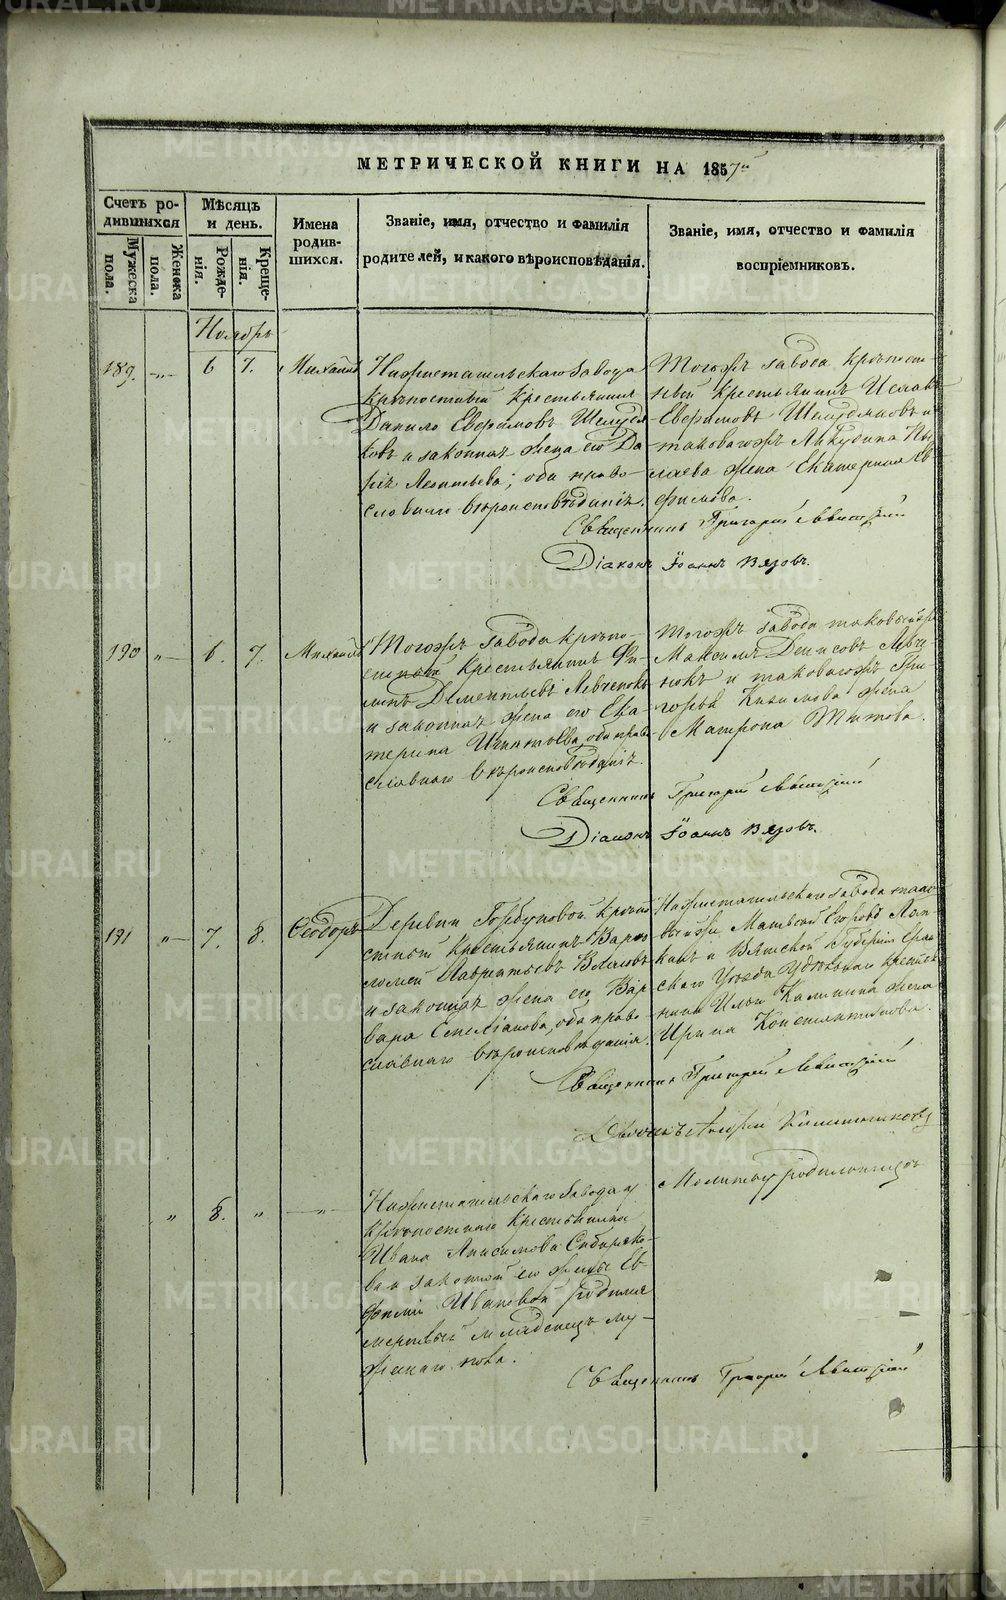 МЕТРИЧЕСКОЙ КНИГИ НА 1857й
Счетъ ро-
дившихся
Мужеска пола.
Женска пола.
Мѣсяцъ
и день.
Рожде-
нія.
Креще-
нія.
Имена
родив-
шихся.
Званіе, имя, отчество и фамилія
родителей, и какого вѣроисповѣданія.
Званіе, имя, отчество и фамилія
воспріемниковъ.
Ноябрь
189. 6 7. Михаилъ
Нижнетагильскаго завода
крѣпостный крестьянинъ
Данило Ефимовъ
ковъ и законная жена его Да
рія Леонтьева; оба право-
славнаго вѣроисповѣданія.
Тогожъ завода крѣпост-
ный крестьянинъ
Ефимовъ и
таковагожъ
жена Екатерина Еф
фимова.
Священникъ Григорій Левитскій
Діаконъ Іоаннъ Вязовъ.
190 " 6. 7. Михаилъ
Тогожъ завода крѣпо-
стной крестьянинъ Фи-
липъ Дементьевъ
и законная жена его Ека
терина Игнатьева, оба прав-
славнаго вѣроисповѣданія.
Тогожъ завода таковыйже
Максимъ Денисовъ
и таковагожъ Гри
горья жена
Матрона Титова.
Священникъ Григорій Левитскій
Діаконъ Іоаннъ Вязовъ.
191 " 7. 8. Ѳеодоръ
Деревни Горбуновой крѣпо
стной крестьянинъ Варѳо
ломей Лаврентьевъ
и законная жена его Вар
вара Емеліанова, оба право-
славнаго вѣроисповѣданія.
Нижнетагильскаго завода тако
выйже Матвей Егоровъ
и Вятской Губерніи Сара
скаго Уѣзда Удѣльнаго крестья
нина Ильи Калинина жена
Ирина Константинова.
Священникъ Григорій Левитскій
Андрей
" 8. " "
Нижнетагильскаго завода у
крѣпостнаго крестьянина
Ивана Анисимова Сибиряко-
ва и законной его жены Ев-
фиміи Ивановой родился
мертвый младенецъ му-
жескаго пола.
Молитву родильницѣ
Священникъ Григорій Левитскій
METRIKI.GASO-URAL.RU